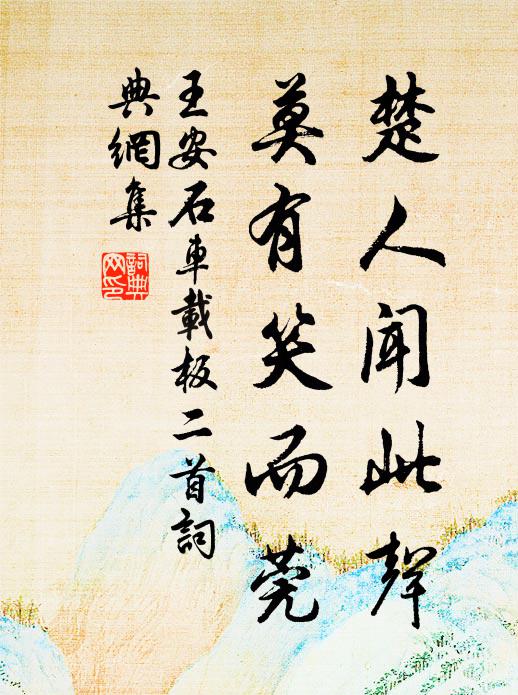 楚人闻此聲
莫有笑而莞
王安石車載板二首詞
典網集
詞典網印